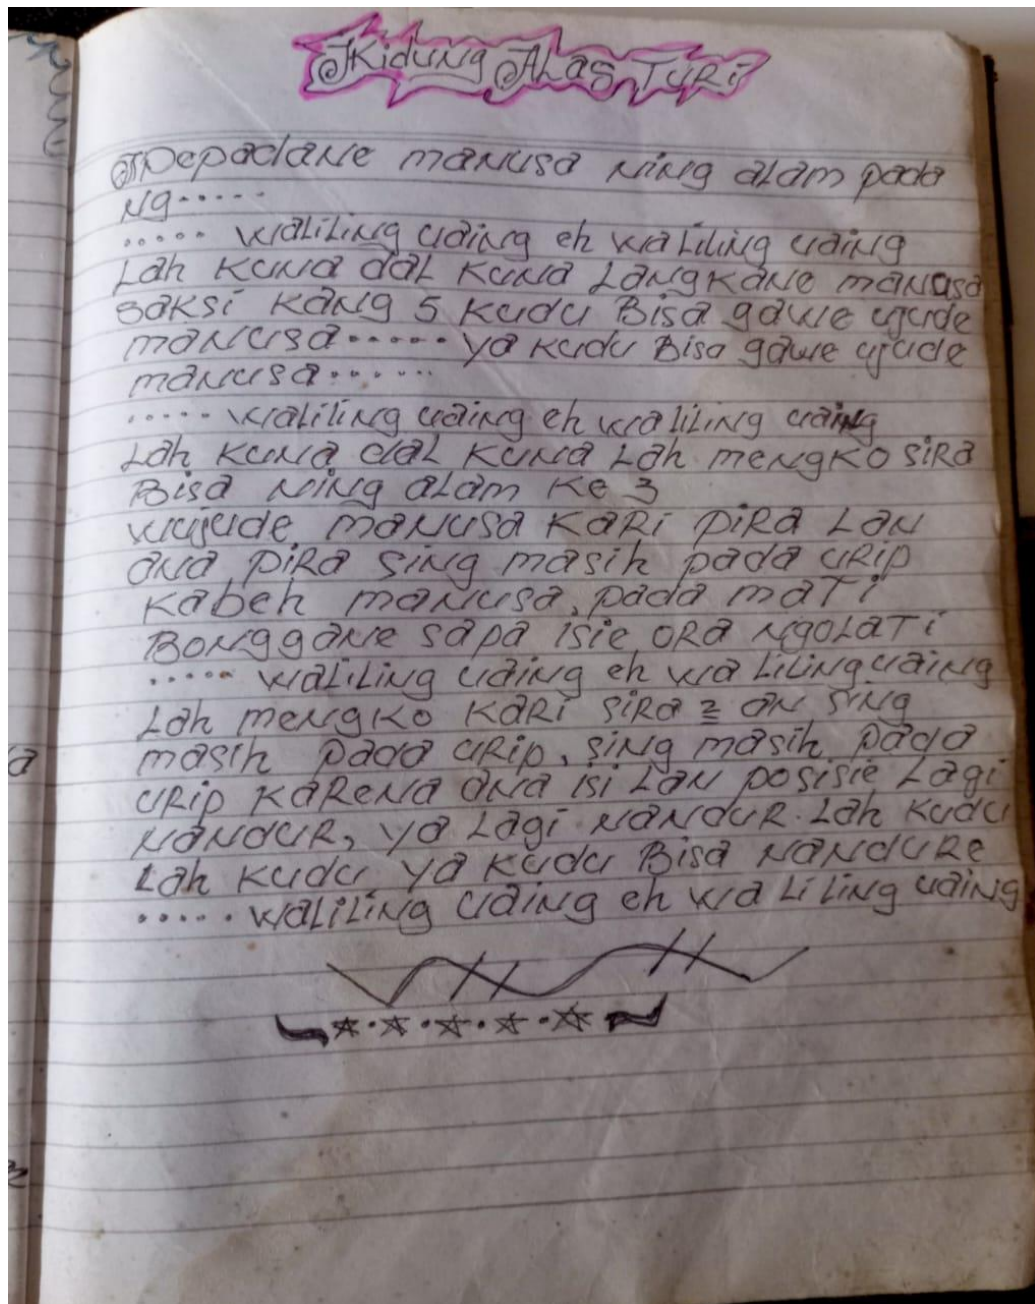 Kidung Alas Turi
Pepadane manusa ning alam pada
ng.....
..... waliling uding eh wa liling uding
Lah kuna dal kuna Langkane manusa
saksi kang 5 kudu Bisa gawe ujude
manusa..... ya kudu Bisa gawe ujude
manusa......
..... waliling uding eh wa liling uding
Lah kuna dal kuna Lah mengko sira
Bisa ning alam ke 3
wujude manusa kari pira Lan
ana pira sing masih pada urip
kabeh manusa, pada mati
Bonggane sapa isie ora ngolati
..... waliling uding eh wa liling uding
Lah mengko kari sira 2 an sing
masih pada urip, sing masih pada
urip karena ana isi Lan posisie Lagi
nandur, ya Lagi nandur. Lah kudu
Lah kudu ya kudu Bisa nandure
..... waliling uding eh wa li ling uding